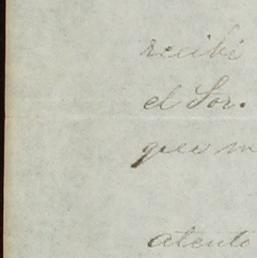 recibí
el Sor.
que m
atento